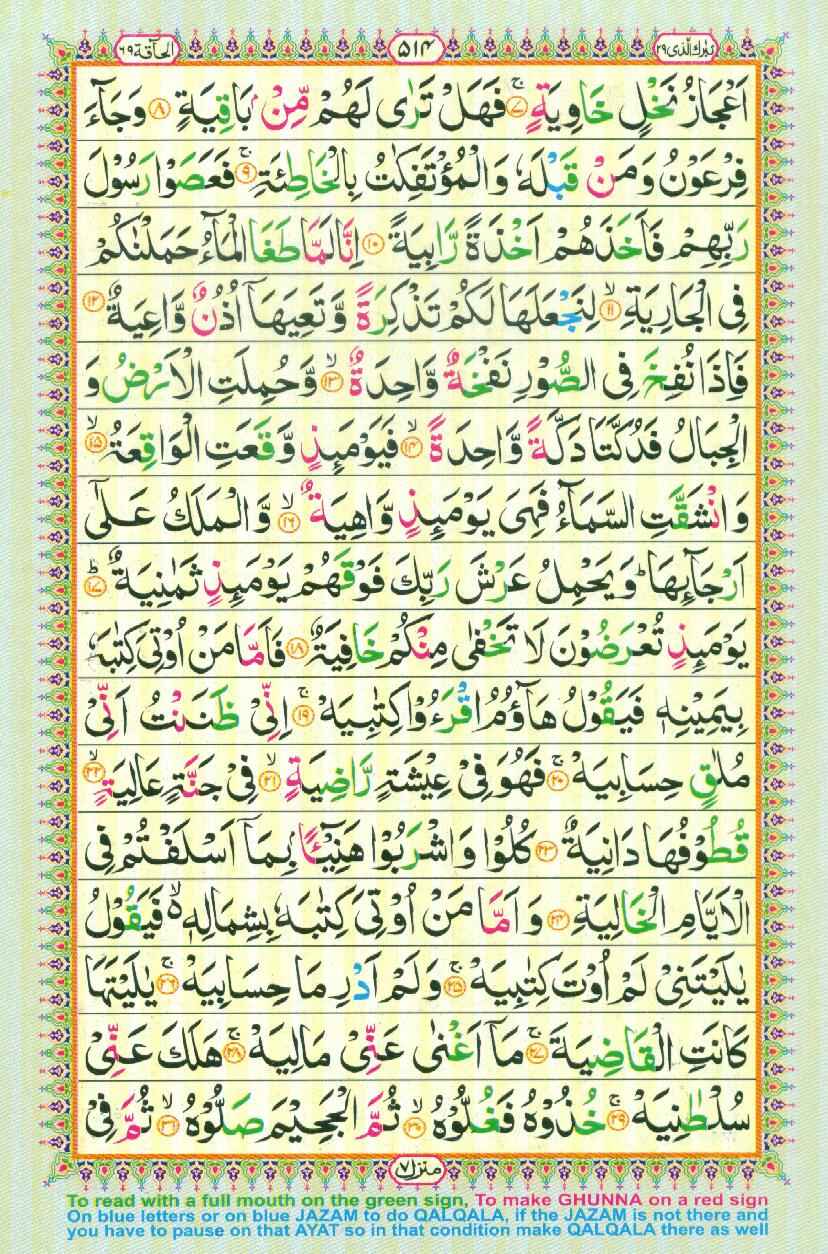 تبٰرك الّذی ٢٩
٥١٤
الحآقة ٦٩
اَعْجَازُ نَخْلٍ خَاوِيَةٍ ۚ‏﴿۷﴾ فَهَلْ تَرٰى لَهُمْ مِّنْۢ بَاقِيَةٍ ﴿۸﴾ وَجَآءَ
فِرْعَوْنُ وَمَنْ قَبْلَهٗ وَالْمُؤْتَفِكٰتُ بِالْخَاطِئَةِ ۚ‏﴿۹﴾ فَعَصَوْا رَسُوْلَ
رَبِّهِمْ فَاَخَذَهُمْ اَخْذَةً رَّابِيَةً ﴿۱۰﴾ اِنَّا لَمَّا طَغَا الْمَآءُ حَمَلْنٰكُمْ
فِى الْجَارِيَةِ ۙ‏﴿۱۱﴾ لِنَجْعَلَهَا لَكُمْ تَذْكِرَةً وَّتَعِيَهَاۤ اُذُنٌ وَّاعِيَةٌ ﴿۱۲﴾
فَاِذَا نُفِخَ فِى الصُّوْرِ نَفْخَةٌ وَّاحِدَةٌ ۙ‏﴿۱۳﴾ وَّحُمِلَتِ الْاَرْضُ وَ
الْجِبَالُ فَدُكَّتَا دَكَّةً وَّاحِدَةً ۙ‏﴿۱۴﴾ فَيَوْمَئِذٍ وَّقَعَتِ الْوَاقِعَةُ ۙ‏﴿۱۵﴾
وَانْشَقَّتِ السَّمَآءُ فَهِىَ يَوْمَئِذٍ وَّاهِيَةٌ ۙ‏﴿۱۶﴾ وَّالْمَلَكُ عَلٰٓى
اَرْجَآئِهَا ؕ وَيَحْمِلُ عَرْشَ رَبِّكَ فَوْقَهُمْ يَوْمَئِذٍ ثَمٰنِيَةٌ ؕ‏﴿۱۷﴾
يَوْمَئِذٍ تُعْرَضُوْنَ لَا تَخْفٰى مِنْكُمْ خَافِيَةٌ ﴿۱۸﴾ فَاَمَّا مَنْ اُوْتِىَ كِتٰبَهٗ
بِيَمِيْنِهٖ فَيَقُوْلُ هَآؤُمُ اقْرَءُوْا كِتٰبِيَهْ ۚ‏﴿۱۹﴾ اِنِّىْ ظَنَنْتُ اَنِّىْ
مُلٰقٍ حِسَابِيَهْ ۚ‏﴿۲۰﴾ فَهُوَ فِىْ عِيْشَةٍ رَّاضِيَةٍ ۙ‏﴿۲۱﴾ فِىْ جَنَّةٍ عَالِيَةٍ ۙ‏﴿۲۲﴾
قُطُوْفُهَا دَانِيَةٌ ﴿۲۳﴾ كُلُوْا وَاشْرَبُوْا هَنِيْٓئًاۢ بِمَاۤ اَسْلَفْتُمْ فِى
الْاَيَّامِ الْخَالِيَةِ ﴿۲۴﴾ وَاَمَّا مَنْ اُوْتِىَ كِتٰبَهٗ بِشِمَالِهٖ ۙ۬ فَيَقُوْلُ
يٰلَيْتَنِىْ لَمْ اُوْتَ كِتٰبِيَهْ ۚ‏﴿۲۵﴾ وَلَمْ اَدْرِ مَا حِسَابِيَهْ ۚ‏﴿۲۶﴾ يٰلَيْتَهَا
كَانَتِ الْقَاضِيَةَ ۚ‏﴿۲۷﴾ مَاۤ اَغْنٰى عَنِّىْ مَالِيَهْ ۚ‏﴿۲۸﴾ هَلَكَ عَنِّىْ
سُلْطٰنِيَهْ ۚ‏﴿۲۹﴾ خُذُوْهُ فَغُلُّوْهُ ۙ‏﴿۳۰﴾ ثُمَّ الْجَحِيْمَ صَلُّوْهُ ۙ‏﴿۳۱﴾ ثُمَّ فِىْ
منزل ٧
To read with a full mouth on the green sign, To make GHUNNA on a red sign
On blue letters or on blue JAZAM to do QALQALA, if the JAZAM is not there and
you have to pause on that AYAT so in that condition make QALQALA there as well